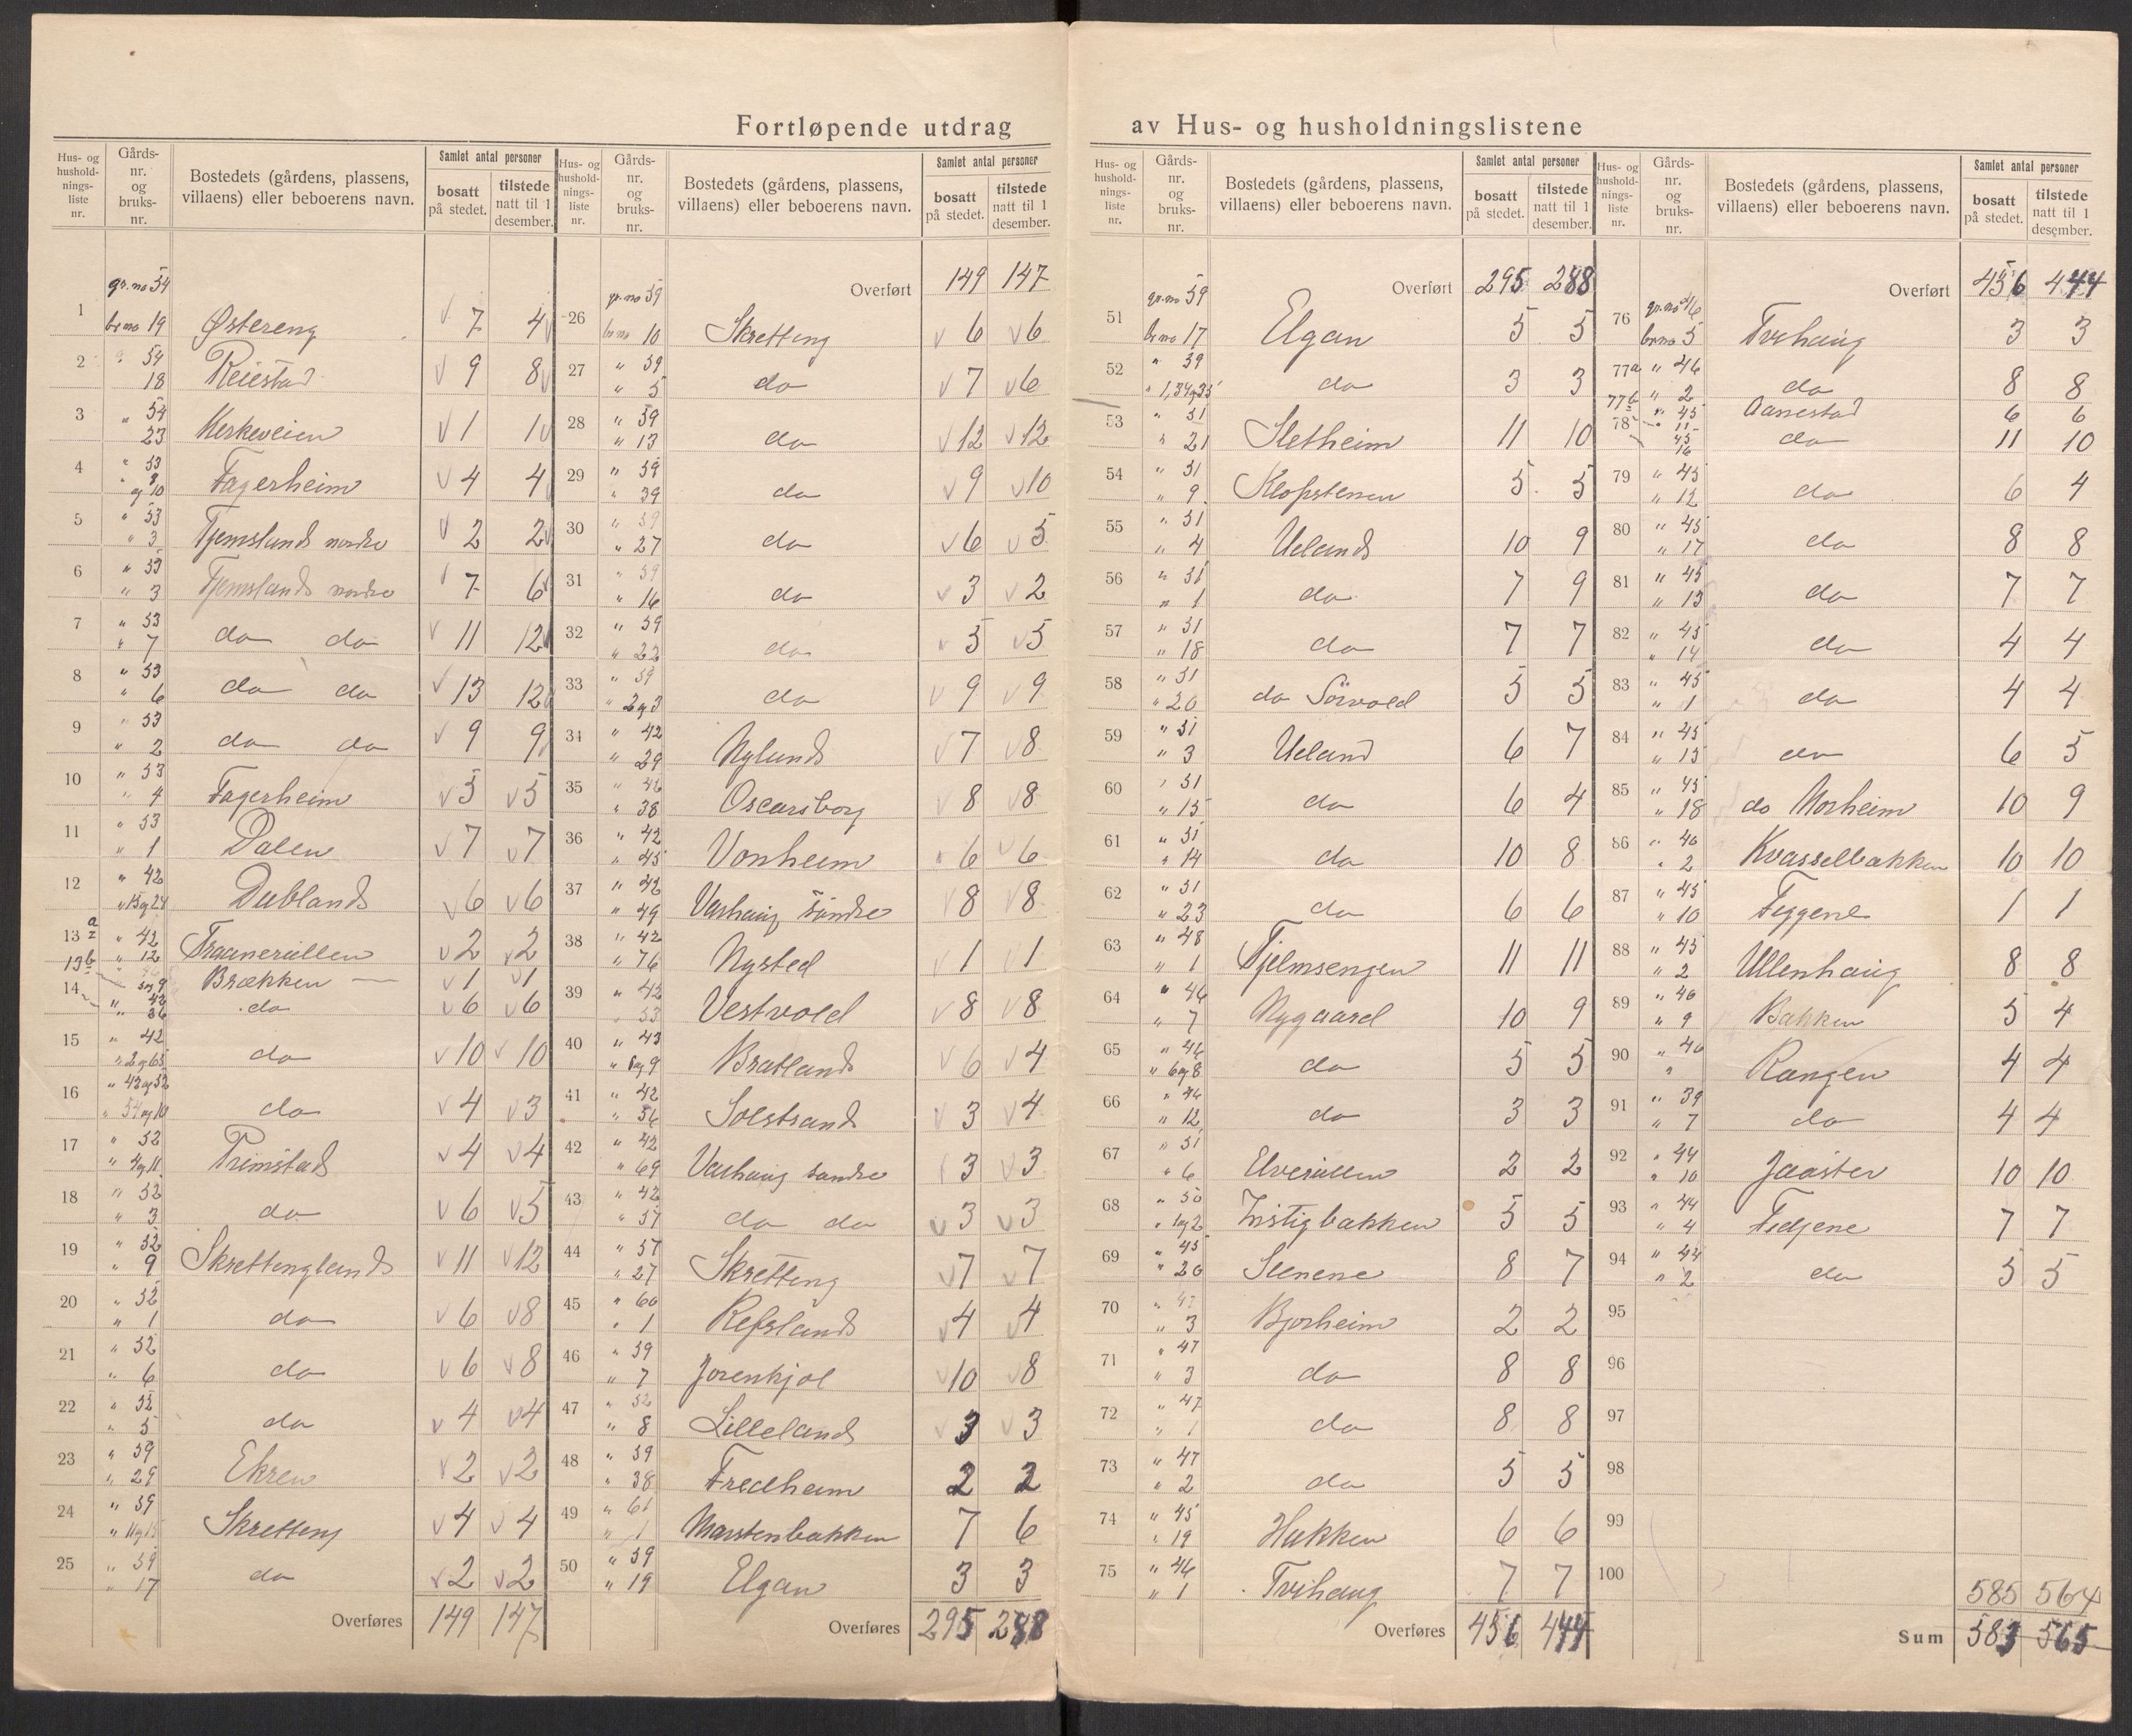 Fortløpende utdrag av Hus- og husholdningslistene
Hus- og hushold-nings-liste nr. | Gårds-nr. og bruks-nr. | Bostedets (gårdens, plassens, villaens) eller beboerens navn. | Samlet antal personer | bosatt på stedet. | tilstede natt til 1 desember.
1 | gr.no 54 br no 19 | Østereng | 7 | 4
2 | " 54 18 | Reiestad | 9 | 8
3 | " 54 " 23 | Kirkeveien | 1 | 1
4 | " 53 " 8 og 10 | Fagerheim | 4 | 4
5 | " 53 " 3 | Tjemsland nordre | 2 | 2
6 | " 53 " 3 | Tjemsland nordre | 7 | 6
7 | " 53 " 7 | do do | 11 | 12
8 | " 53 " 6 | do do | 13 | 12
9 | " 53 " 2 | do do | 9 | 9
10 | " 53 " 4 | Fagerheim | 5 | 5
11 | " 53 " 1 | Dalen | 7 | 7
12 | " 42 " 15 og 24 | Dubland | 6 | 6
13 a | " 42 " 12 | Traanerillen | 2 | 2
13 b | Brækken | 1 | 1
14 | " 42 " 36 | do | 6 | 6
15 | " 42 " 2 og 65 | do | 10 | 10
16 | " 42 og 52 " 54 og 10 | do | 4 | 3
17 | " 52 " 4 og 11 | Primstad | 4 | 4
18 | " 52 " 3 | do | 6 | 5
19 | " 52 " 9 | Skrettengland | 11 | 12
20 | " 52 " 1 | do | 6 | 8
21 | " 52 " 6 | do | 6 | 8
22 | " 52 " 5 | do | 4 | 4
23 | " 59 " 29 | Ekren | 2 | 2
24 | " 59 " 11 og 15 | Skretteng | 4 | 4
25 | " 59 " 17 | do | 2 | 2
Overføres | 149 | 147
Hus- og hushold-nings-liste nr. | Gårds-nr. og bruks-nr. | Bostedets (gårdens, plassens, villaens) eller beboerens navn. | Samlet antal personer | bosatt på stedet. | tilstede natt til 1 desember.
Overført | 149 | 147
26 | gr.no 59 br no 10 | Skretteng | 6 | 6
27 | " 59 " 5 | do | 7 | 6
28 | " 59 " 13 | do | 12 | 12
29 | " 59 " 39 | do | 9 | 10
30 | " 59 " 27 | do | 6 | 5
31 | " 59 " 16 | do | 3 | 2
32 | " 59 " 22 | do | 5 | 5
33 | " 59 " 2 og 3 | do | 9 | 9
34 | " 42 " 29 | Nylund | 7 | 8
35 | " 42 " 38 | Oscarsborg | 8 | 8
36 | " 42 " 45 | Vonheim | 6 | 6
37 | " 42 " 49 | Varhaug søndre | 8 | 8
38 | " 42 " 76 | Nysted | 1 | 1
39 | " 42 " 53 | Vestvold | 8 | 8
40 | " 43 " 8 og 9 | Bratland | 6 | 4
41 | " 42 " 56 | Solstrand | 3 | 4
42 | " 42 " 69 | Varhaug søndre | 3 | 3
43 | " 42 " 57 | do do | 3 | 3
44 | " 57 " 27 | Skretteng | 7 | 7
45 | " 60 " 1 | Refsland | 4 | 4
46 | " 59 " 7 | Josenkjøl | 10 | 8
47 | " 52 " 8 | Lilleland | 3 | 3
48 | " 59 " 38 | Fredheim | 2 | 2
49 | " 61 " 1 | Marstenbakken | 7 | 6
50 | " 59 " 19 | Elgan | 3 | 3
Overføres | 295 | 288
Hus- og hushold-nings-liste nr. | Gårds-nr. og bruks-nr. | Bostedets (gårdens, plassens, villaens) eller beboerens navn. | Samlet antal personer | bosatt på stedet. | tilstede natt til 1 desember.
Overført | 295 | 288
51 | gr.no 59 br no 17 | Elgan | 5 | 5
52 | " 59 " 1, 34 og 35 | do | 3 | 3
53 | " 51 " 21 | Sletheim | 11 | 10
54 | " 51 " 9 | Klopstenen | 5 | 5
55 | " 51 " 4 | Ueland | 10 | 9
56 | " 51 " 1 | do | 7 | 9
57 | " 51 " 18 | do | 7 | 7
58 | " 51 " 20 | do Sørvold | 5 | 5
59 | " 51 " 3 | Ueland | 6 | 7
60 | " 51 " 15 | do | 6 | 4
61 | " 51 " 14 | do | 10 | 8
62 | " 51 " 23 | do | 6 | 6
63 | " 48 " 1 | Tjelmsengen | 11 | 11
64 | " 46 " 7 | Nygaard | 10 | 9
65 | " 46 " 6 og 8 | do | 5 | 5
66 | " 46 " 12 | do | 3 | 3
67 | " 51 " 6 | Elverillen | 2 | 2
68 | " 50 " 1 og 2 | Instigbakken | 5 | 5
69 | " 45 " 20 | Stenene | 8 | 7
70 | " 47 " 3 | Bjorheim | 2 | 2
71 | " 47 " 3 | do | 8 | 8
72 | " 47 " 1 | do | 8 | 8
73 | " 47 " 2 | do | 5 | 5
74 | " 45 " 19 | Hakken | 6 | 6
75 | " 46 " 1 | Tvihaug | 7 | 7
Overføres | 456 | 444
Hus- og hushold-nings-liste nr. | Gårds-nr. og bruks-nr. | Bostedets (gårdens, plassens, villaens) eller beboerens navn. | Samlet antal personer | bosatt på stedet. | tilstede natt til 1 desember.
Overført | 456 | 444
76 | gr.no 46 br no 5 | Tvihaug | 3 | 3
77 a | " 46 " 2 | do | 8 | 8
77 b | " 45 " 11 | Aanestad | 6 | 6
78 | 45 16 | do | 11 | 10
79 | " 45 " 12 | do | 6 | 4
80 | " 45 " 17 | do | 8 | 8
81 | " 45 " 13 | do | 7 | 7
82 | " 45 " 14 | do | 4 | 4
83 | " 45 " 1 | do | 4 | 4
84 | " 45 " 15 | do | 6 | 5
85 | " 45 " 18 | do Morheim | 10 | 9
86 | " 40 " 2 | Kvasselbakken | 10 | 10
87 | " 45 " 10 | Figgene | 1 | 1
88 | " 45 " 2 | Ullenhaug | 8 | 8
89 | " 40 " 9 | Bakken | 5 | 4
90 | " 40 " | Rangen | 4 | 4
91 | " 39 " 7 | do | 4 | 4
92 | " 44 " 10 | Jaaster | 10 | 10
93 | " 44 " 4 | Fedjene | 7 | 7
94 | " 44 " 2 | do | 5 | 5
95
96
97
98
99
100
585 | 564
Sum | 583 | 565